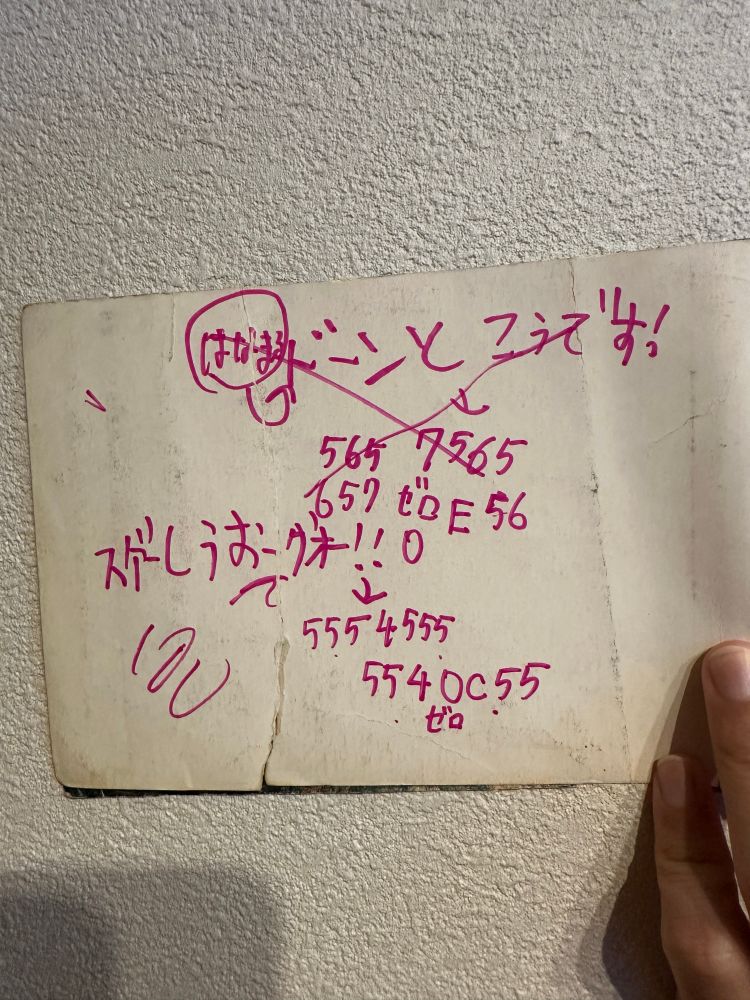 はなまる ドンと こうです!
565 7565
657 ゼロE 56
スゲーしうおーびオー!! 0
で ↓
5554555
5540C55
ゼロ